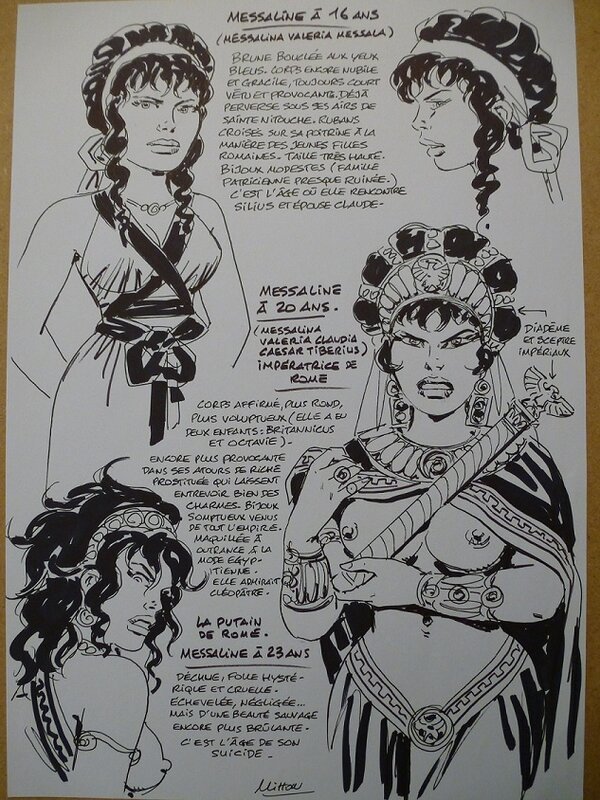 MESSALINE À 16 ANS
(MESSALINA VALERIA MESSALA)
BRUNE BOUCLÉE AUX YEUX
BLEUS. CORPS ENCORE NUBILE
ET GRACILE, TOUJOURS COURT
VÊTU ET PROVOCANT. DÉJÀ
PERVERSE SOUS SES AIRS DE
SAINTE NITOUCHE. RUBANS
CROISÉS SUR SA POITRINE À LA
MANIÈRE DES JEUNES FILLES
ROMAINES. TAILLE TRÈS HAUTE.
BIJOUX MODESTES (FAMILLE
PATRICIENNE PRESQUE RUINÉE.)
C'EST L'ÂGE OÙ ELLE RENCONTRE
SILIUS ET ÉPOUSE CLAUDE.
MESSALINE
À 20 ANS.
(MESSALINA
VALERIA CLAUDIA
CAESAR TIBERIUS)
IMPÉRATRICE DE
ROME
DIADÈME
ET SCEPTRE
IMPÉRIAUX
CORPS AFFIRMÉ, PLUS ROND,
PLUS VOLUPTUEUX (ELLE A EU
DEUX ENFANTS: BRITANNICUS
ET OCTAVIE).
ENCORE PLUS PROVOCANTE
DANS SES ATOURS DE RICHE
PROSTITUÉE QUI LAISSENT
ENTREVOIR BIEN DES
CHARMES. BIJOUX
SOMPTUEUX VENUS
DE TOUT L'EMPIRE.
MAQUILLÉE À
OUTRANCE À LA
MODE ÉGYP-
TIENNE.
ELLE ADMIRAIT
CLÉOPÂTRE.
LA PUTAIN
DE ROME.
MESSALINE À 23 ANS
DÉCHUE, FOLLE HYSTÉ-
RIQUE ET CRUELLE.
ÉCHEVELÉE, NÉGLIGÉE...
MAIS D'UNE BEAUTÉ SAUVAGE
ENCORE PLUS BRÛLANTE.
C'EST L'ÂGE DE SON
SUICIDE.
Mitton